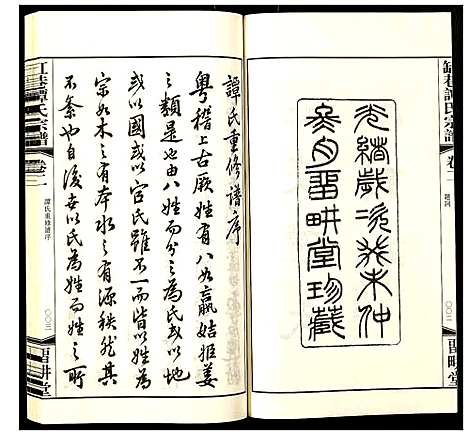 缸巷譚氏宗譜
卷二
題詞
〇〇二
留畊堂
光緒歲次癸未仲
冬月留畊堂珍藏
譚氏重修譜序
粵稽上古厥姓有八如嬴姞姬姜
之類是也由八姓而分之為氏或以地
或以國或以官氏雖不一而皆以姓為
宗如木之有本水之有源秩然其
不紊也自後世以氏為姓而姓之所
缸巷譚氏宗譜
卷二
譚氏重修譜序
〇〇三
留畊堂